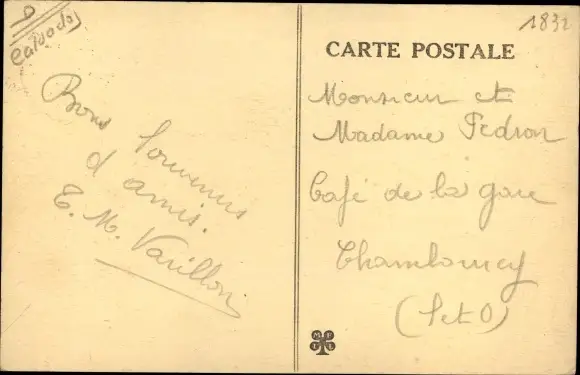 Calvados
Bons Souvenirs
d'amis.
T. M. Varillon
1832
CARTE POSTALE
Monsieur et
Madame Pedron
Café de la gare
Chambourcy
(S et O)